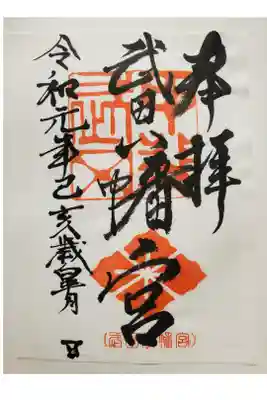 奉拝
武田八幡宮
令和元年己亥歳皐月